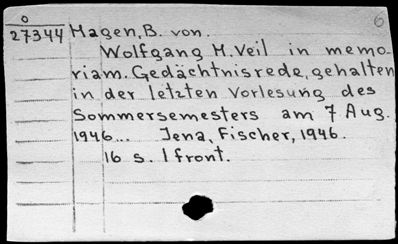 0
27344 Hagen, B. von.
6
Wolfgang H. Veil in memo-
riam. Gedächtnisrede, gehalten
in der letzten Vorlesung des
Sommersemesters am 7 Aug.
1946... Jena, Fischer, 1946.
16 s. 1 front.